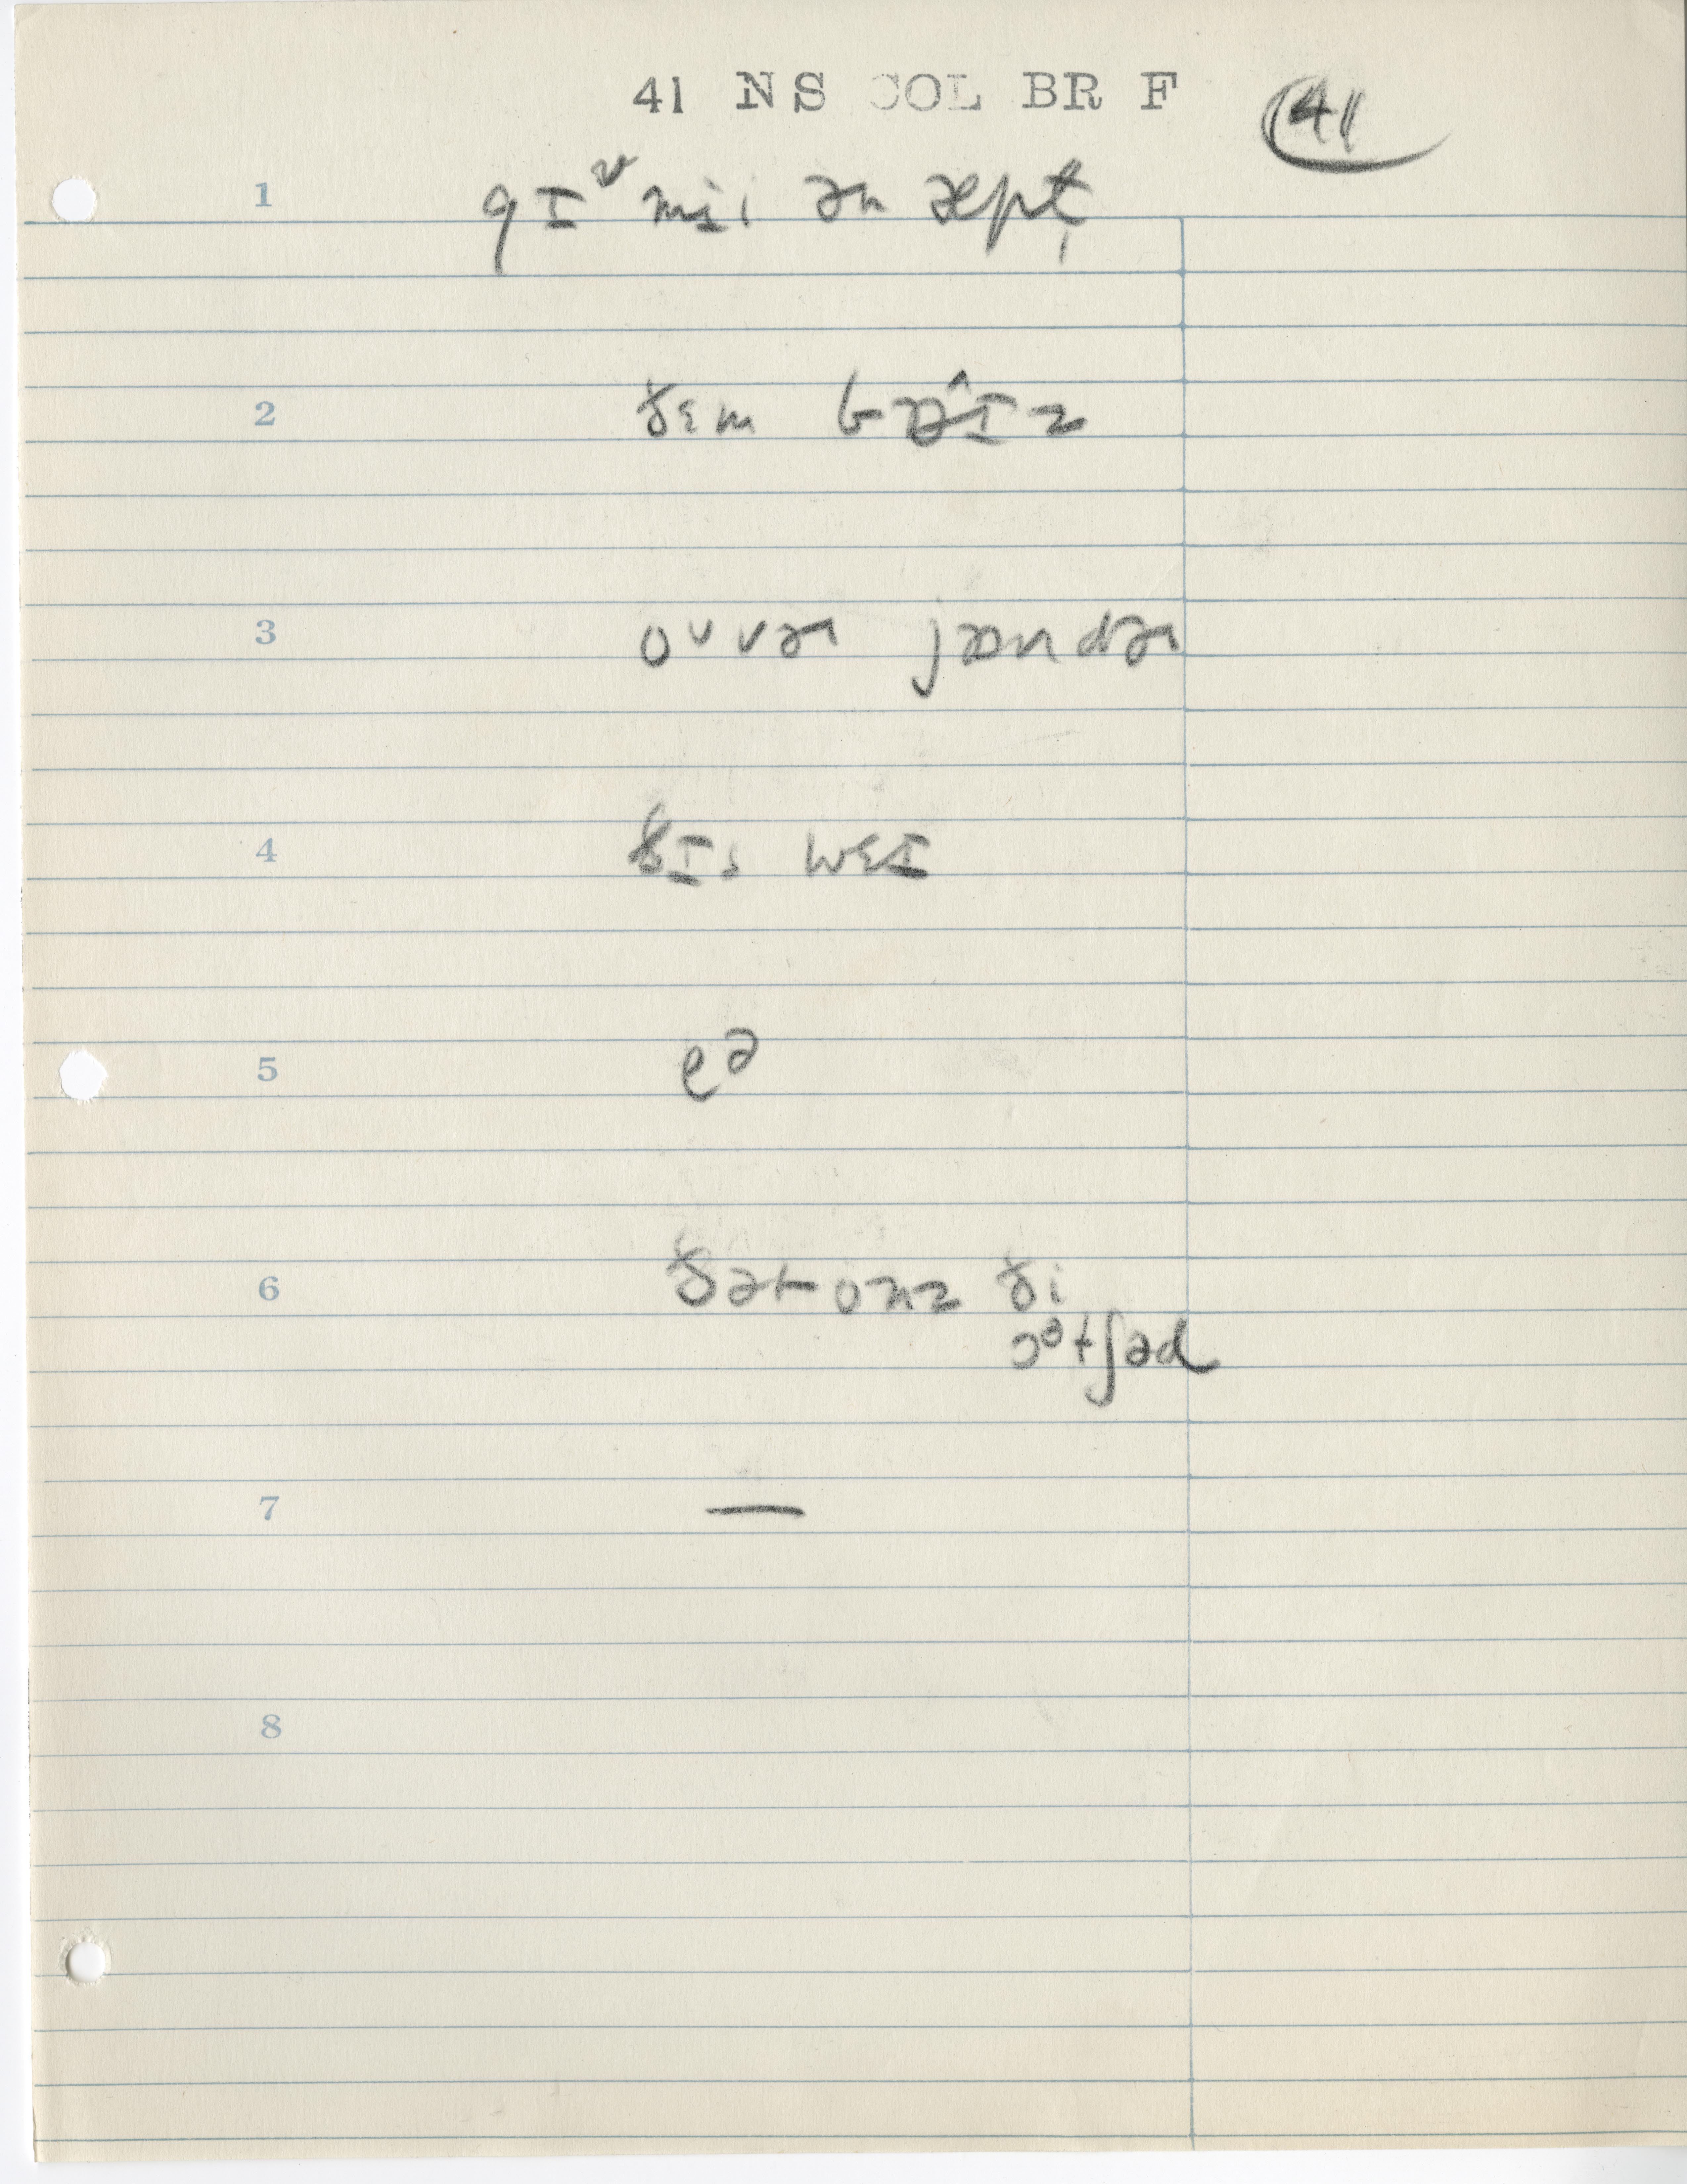 41 NS COL BR F
41
1 gɪᵛ mɪi ən æpt̩
2 ðɛm bɒˆɪz
3 oᴜvəɹ jɒndəɹ
4 ðɪs wɛɪ
5 eᵊ
6 ðət onz ði
ɔᵊtʃəd
7 —
8